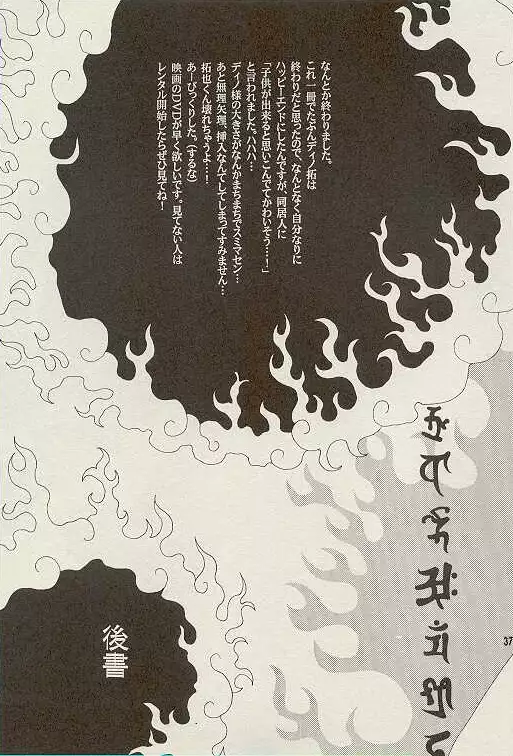 なんとか終わりました。
これ一冊でたぶんディノ拓は
終わりだと思ったので、なんとなく自分なりに
ハッピーエンドにしたんですが、同居人に
「子供が出来ると思いこんでてかわいそう…！」
と言われました。ハハハ…
ディノ様の大きさがなんかまちまちでスミマセン…
あと無理矢理、挿入なんてしてしまってすみません…
拓也くん壊れちゃうよ…！
あーびっくりした。（するな）
映画のDVDが早く欲しいです。見てない人は
レンタル開始したらぜひ見てね！
後書
37